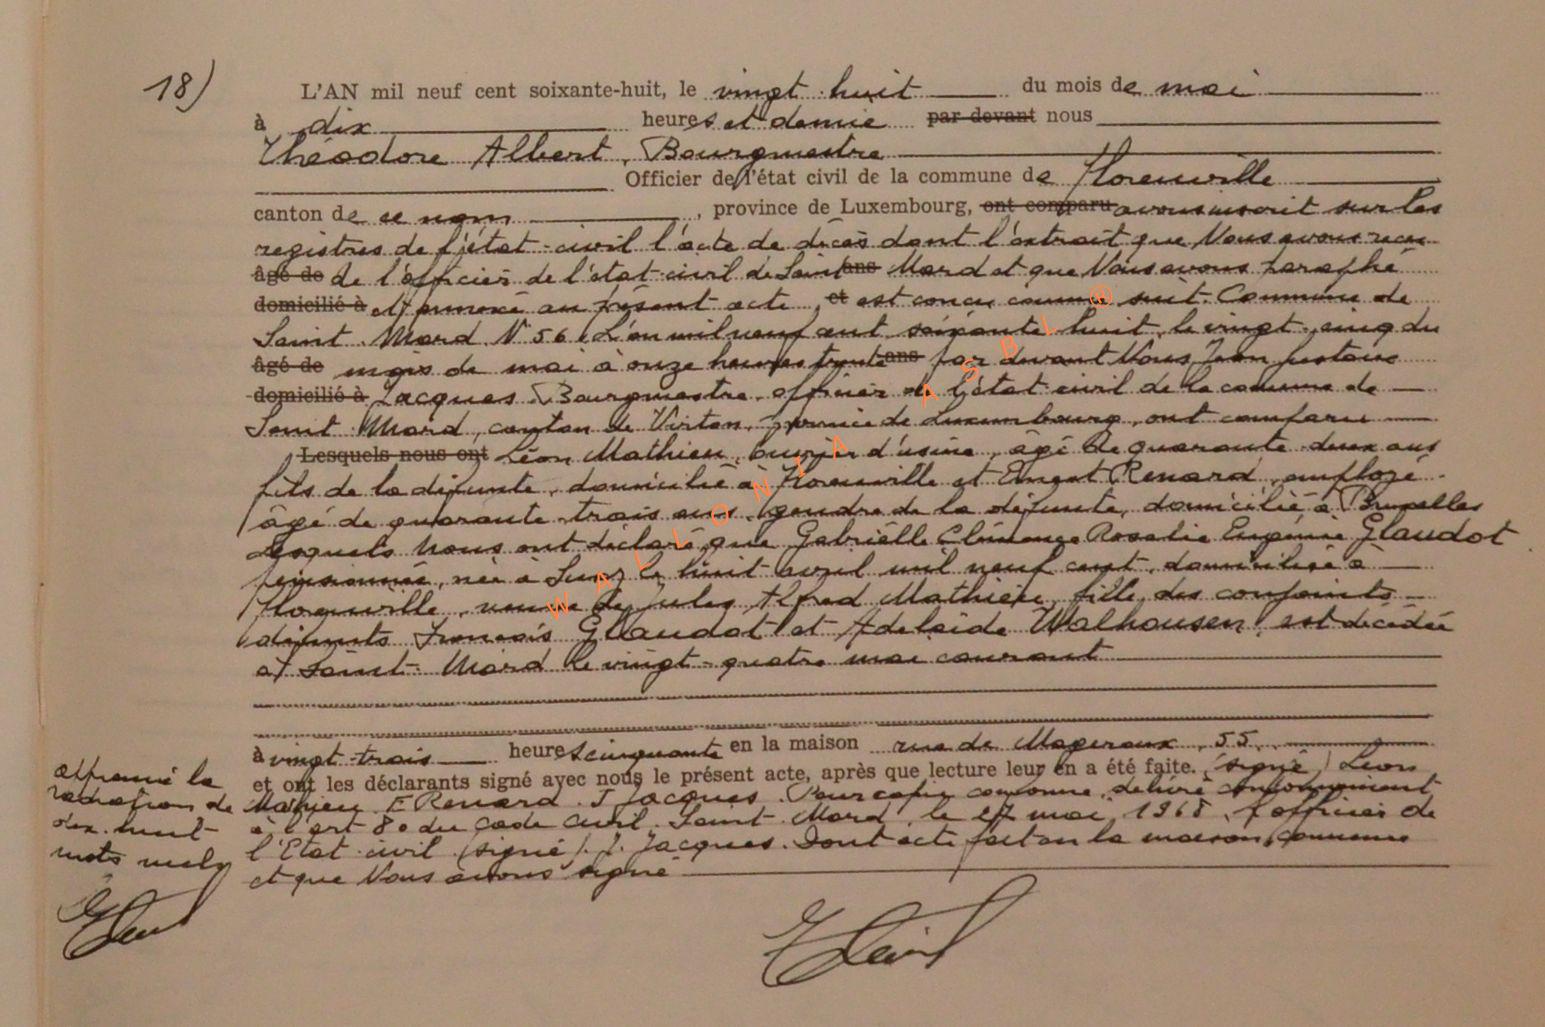 18)
L'AN mil neuf cent soixante-huit, le vingt huit du mois de mai
à dix heures et demie par devant nous
Théodore Albert, Bourgmestre
Officier de l'état civil de la commune de Florenville
canton de ce nom, province de Luxembourg, ont comparu avons inscrit sur les
registres de l'état-civil l'acte de décès dont l'extrait que Nous avons reçu
âgé de de l'officier de l'état-civil de Saint ans Mard et que Nous avons paraphé
domicilié à et annexé au présent acte, et est conçu comme suit. Commune de
Saint-Mard N° 56. L'an mil neuf cent soixante huit, le vingt-cinq du
âgé de mois de mai à onze heures trente ans par devant Nous Jean
domicilié à Jacques Bourgmestre, officier de l'état-civil de la commune de
Saint-Mard, canton de Virton, province de Luxembourg, ont comparu
Lesquels nous ont Léon Mathieu, ouvrier d'usine, âgé de quarante-deux ans
fils de la défunte, domicilié à Florenville et Ernest Renard, employé
âgé de quarante-trois ans, gendre de la défunte, domicilié à Bruxelles
Lesquels Nous ont déclaré que Gabriëlle Clémence Rosalie Eugénie Glaudot
pensionnée, née à Suxy le huit avril mil neuf cent, domiciliée à
Florenville, veuve de Jules Alfred Mathieu, fille des conjoints
défunts François Glaudot et Adelaïde Walhousen, est décédée
à Saint-Mard le vingt-quatre mai courant
à vingt-trois heures cinquante en la maison rue de Mageroux, 55
et ont les déclarants signé avec nous le présent acte, après que lecture leur en a été faite. (signé) Léon
Mathieu E Renard. J Jacques. Pour copie conforme, délivré conformément
à l'art 80 du Code Civil. Saint-Mard, le 27 mai 1968, l'officier de
l'Etat-civil (signé) J. Jacques. Dont acte fait en la maison commune
et que Nous avons signé
approuvé la
radiation de
dix-huit
mots nuls
WALLONIA ASBL @